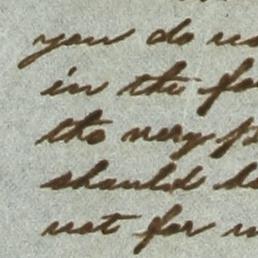 you do
in the
the very
should
not for